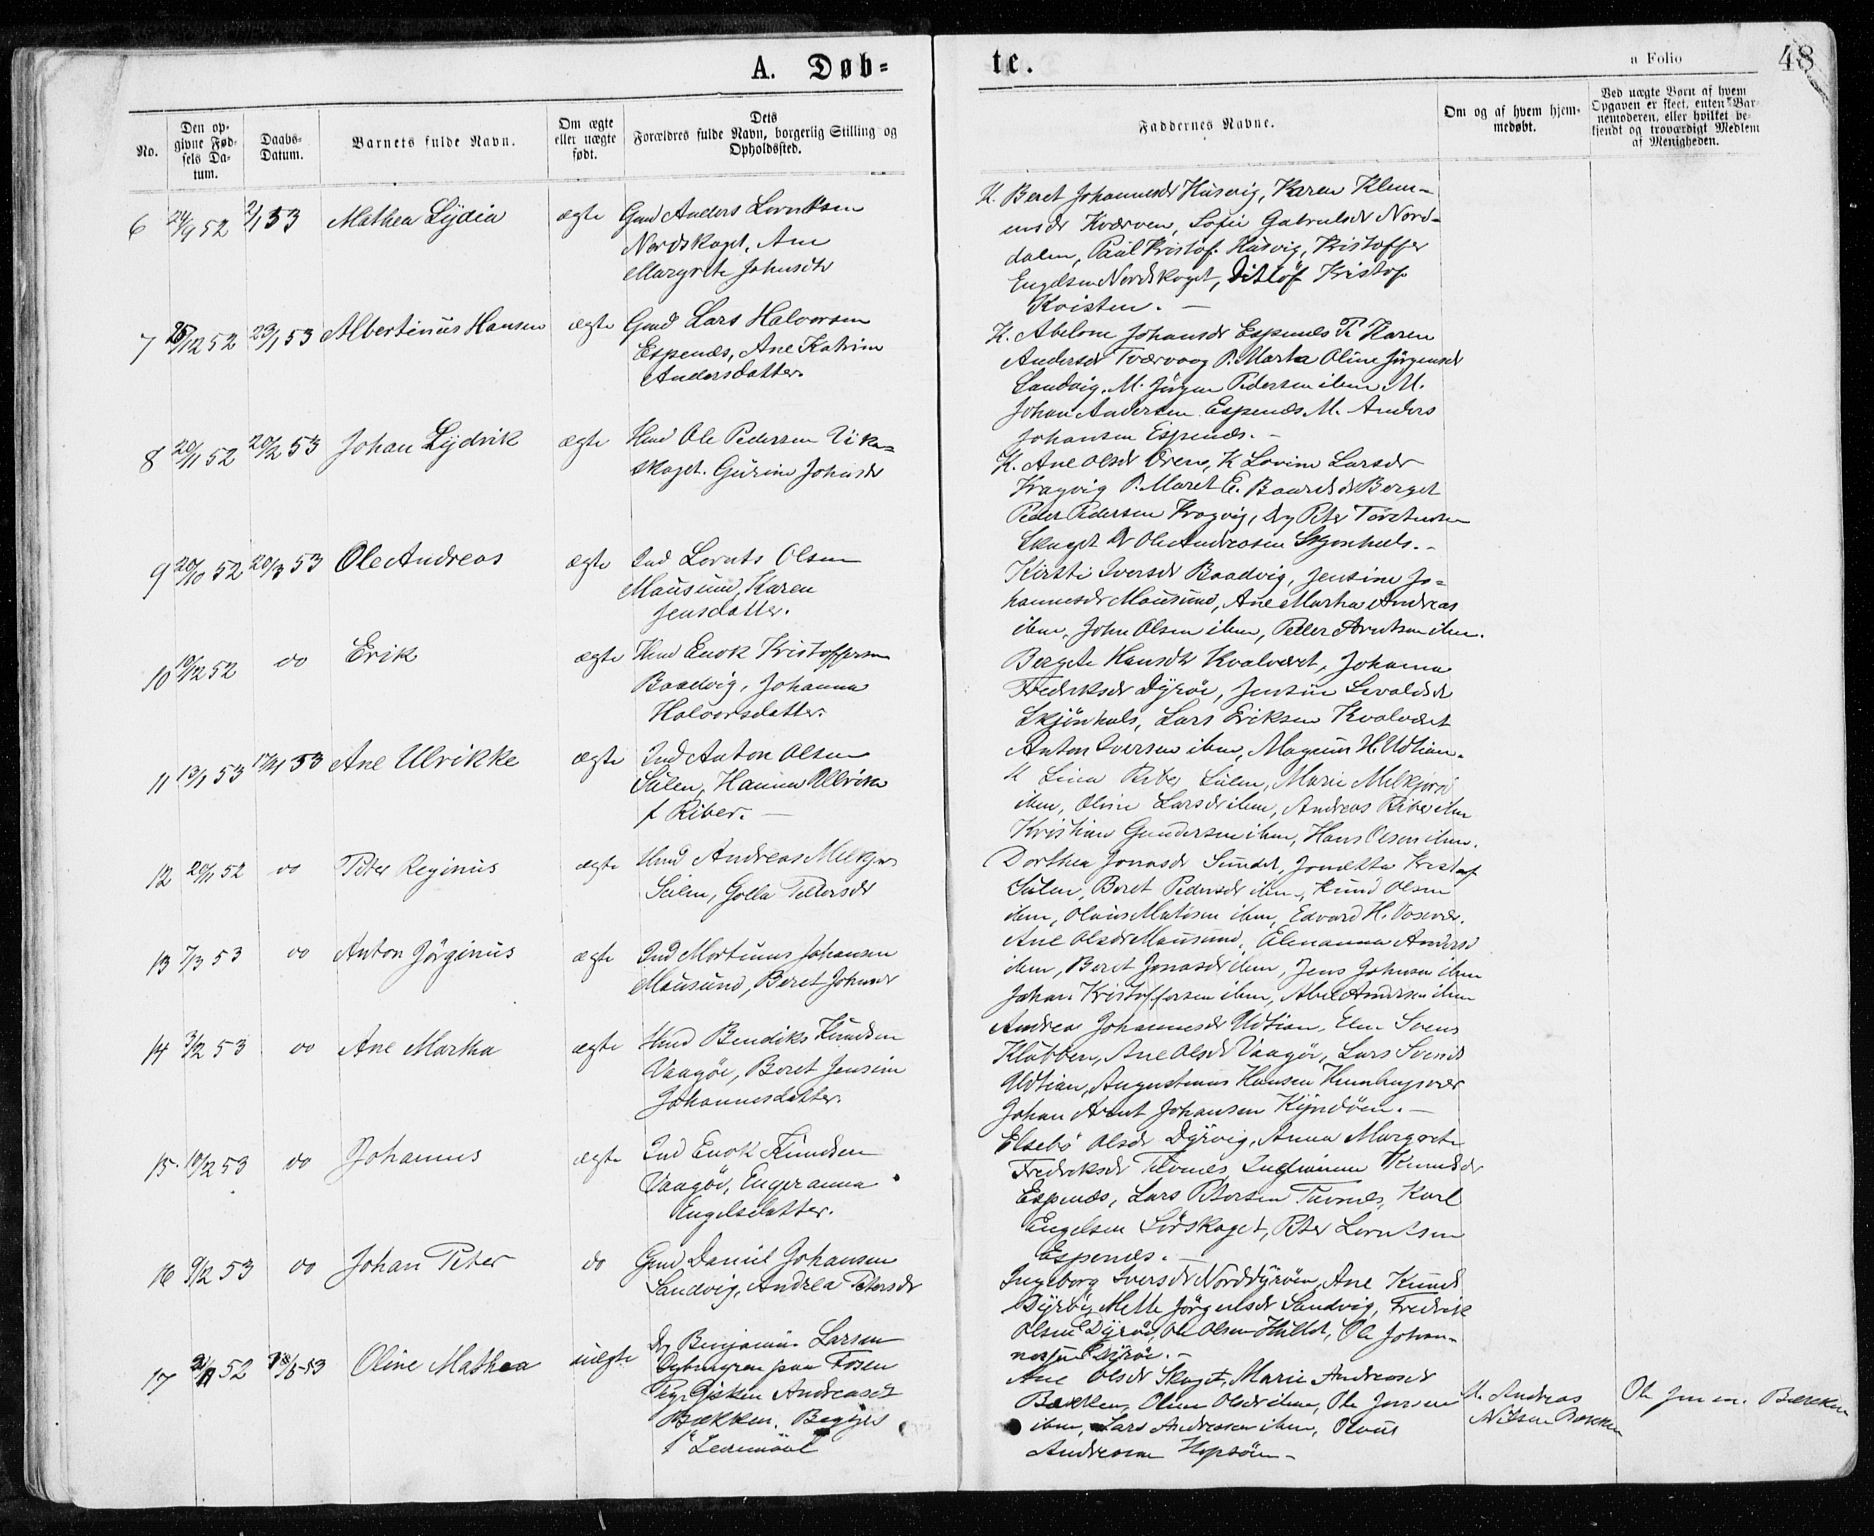 A. Døb=
te.
a Folio
48
No.
Den op-
givne Fød-
sels Da-
tum.
Daabs-
Datum.
Barnets fulde Navn.
Om ægte
eller uægte
født.
Dets
Forældres fulde Navn, borgerlig Stilling og
Opholdssted.
Faddernes Navne.
Om og af hvem hjem-
medøbt.
Ved uægte Børn af hvem
Opgaven er skeet, enten Bar-
nemoderen, eller hvilket be-
kjendt og troværdigt Medlem
af Menigheden.
6 24/9 52 2/1 53 Mathea Lydia ægte Gmd Anders Lorntsen
Nordskaget, Ane
Margrete Johnsdtr
K. Beret Johannesdr Husvig, Karen Klem-
ensdr Kværven, Sofie Gabrielsdr Nord-
dalen, Paul Kristof. Husvig, Kristoffer
Engelsen Nordskaget, Ditlöf Kristof.
Kvisten. —
7 12 52 23/1 53 Albertinus Hansen ægte Gmd Lars Halvorsen
Espenæs, Ane Katrine
Andersdatter.
K. Abelone Johansdr Espenæs P. Karen
Andersdr Tværvaag P. Marta Oline Jörgensdr
Sandvig. M. Jörgen Pedersen ibm M.
Johan Andersen Espenæs M. Anders
Johansen Espenæs. -
8 20/11 52 20/2 53 Johan Lydvik ægte Hmd Ole Pedersen Vika-
skaget. Gurine Johnsdr
K. Ane Olsdr Ören, K Lovine Larsdr
Kragvig P. Maret E. Baardsdr Berget
Peder Pedersen Kragvig, Peter
Skaget Ole Andreasen Skjønhals. -
9 20/10 52 20/3 53 Ole Andreas ægte Ind Lornts Olsen
Mausund, Karen
Jensdatter.
Kirsti Iversdr Baadvig, Jensine Jo-
hannesdr Mausund, Ane Marta Andreas
ibm, John Olsen ibm, Peter Arntsen ibm.
10 10/12 52 do Erik ægte Hmd Enok Kristoffersen
Baadvig, Johanna
Halvorsdatter.
Bergete Hansdtr Kvalværet, Johanna
Fredriksdr Dyröe, Jensine Sivaldsdr
Skjönhals, Lars Eriksen Kvalværet
Anton Iversen ibm, Magnus H. Udtian.
11 13/1 53 53 Ane Ulrikke ægte Ind Anton Olsen
Sulen, Hanna Ulrikke
f Riber. —
Lina Riber Sulen, Marie Melkjors
ibm, Oline Larsdr ibm, Andreas Riber ibm
Kristian Gundersen ibm, Hans Olsen ibm.
12 20/11 52 do Peter Reginus ægte Hmd Andreas Melkjors
Sulen, Golla Petersdr
Dorthea Jonasdr Sundet, Jonetta Kristof
Sulen, Beret Pedersdr ibm, Knud Olsen
ibm, Olaus Matisen ibm, Edvard H. Vosvær.
13 7/3 53 do Anton Jörginus ægte Ind Mortinus Johansen
Mausund, Beret Johnsdr
Ane Olsdr Mausund, Elenanna Andersd
ibm, Beret Jonasdr ibm, Jens Johnsen ibm
Johan Kristoffersen ibm, Abel Andersen ibm
14 3/2 53 do Ane Marta ægte Hmd Bendiks Knudsen
Vaagöe, Beret Jensine
Johannesdatter.
Andrea Johannesdr Udtian, Elen Svens
Klubben, Ane Olsdr Vaagöe, Lars Svends
Udtian, Augustinus Hansen Hummelvær
Johan Arnt Johansen Kyndöen. —
15. 10/2 53 do Johannes ægte Ind Enok Knudsen
Vaagöe, Engeranna
Engelsdatter.
Elsebö Olsdr Dyrvig, Anna Margrete
Fredriksdr Tuvnes, Knudsdr
Espenæs, Lars Petersen Tuvnes, Karl
Engelsen Sörskaget, Peter Lorntsen
Espenæs. —
16 9/12 53 do Johan Peter do Gmd Daniel Johansen
Sandvig, Andrea Petersdr
Ingeborg Iversdr Norddyröen, Ane Knuds
Dyröe, Mette Jörgensdr Sandvig, Fredrik
Olsen Dyröe, Ole Olsen Hullet, Ole Johan-
nesen Dyröe. -
17 52 53 Oline Mathea uægte Benjamin Larsen
paa Fosen
Pig. Gjertken Andreasdr
Bækken. Begge
1ste Leiermaal
Ane Olsdr Skaget, Marie Andreasd
Bækken, Oline Olsdr ibm, Ole Jensen
ibm, Lars Andreasen ibm, Olaus
Andreasen Hopsöen -
Andreas
Nilsen Bækken
Ole Jensen. Bækken